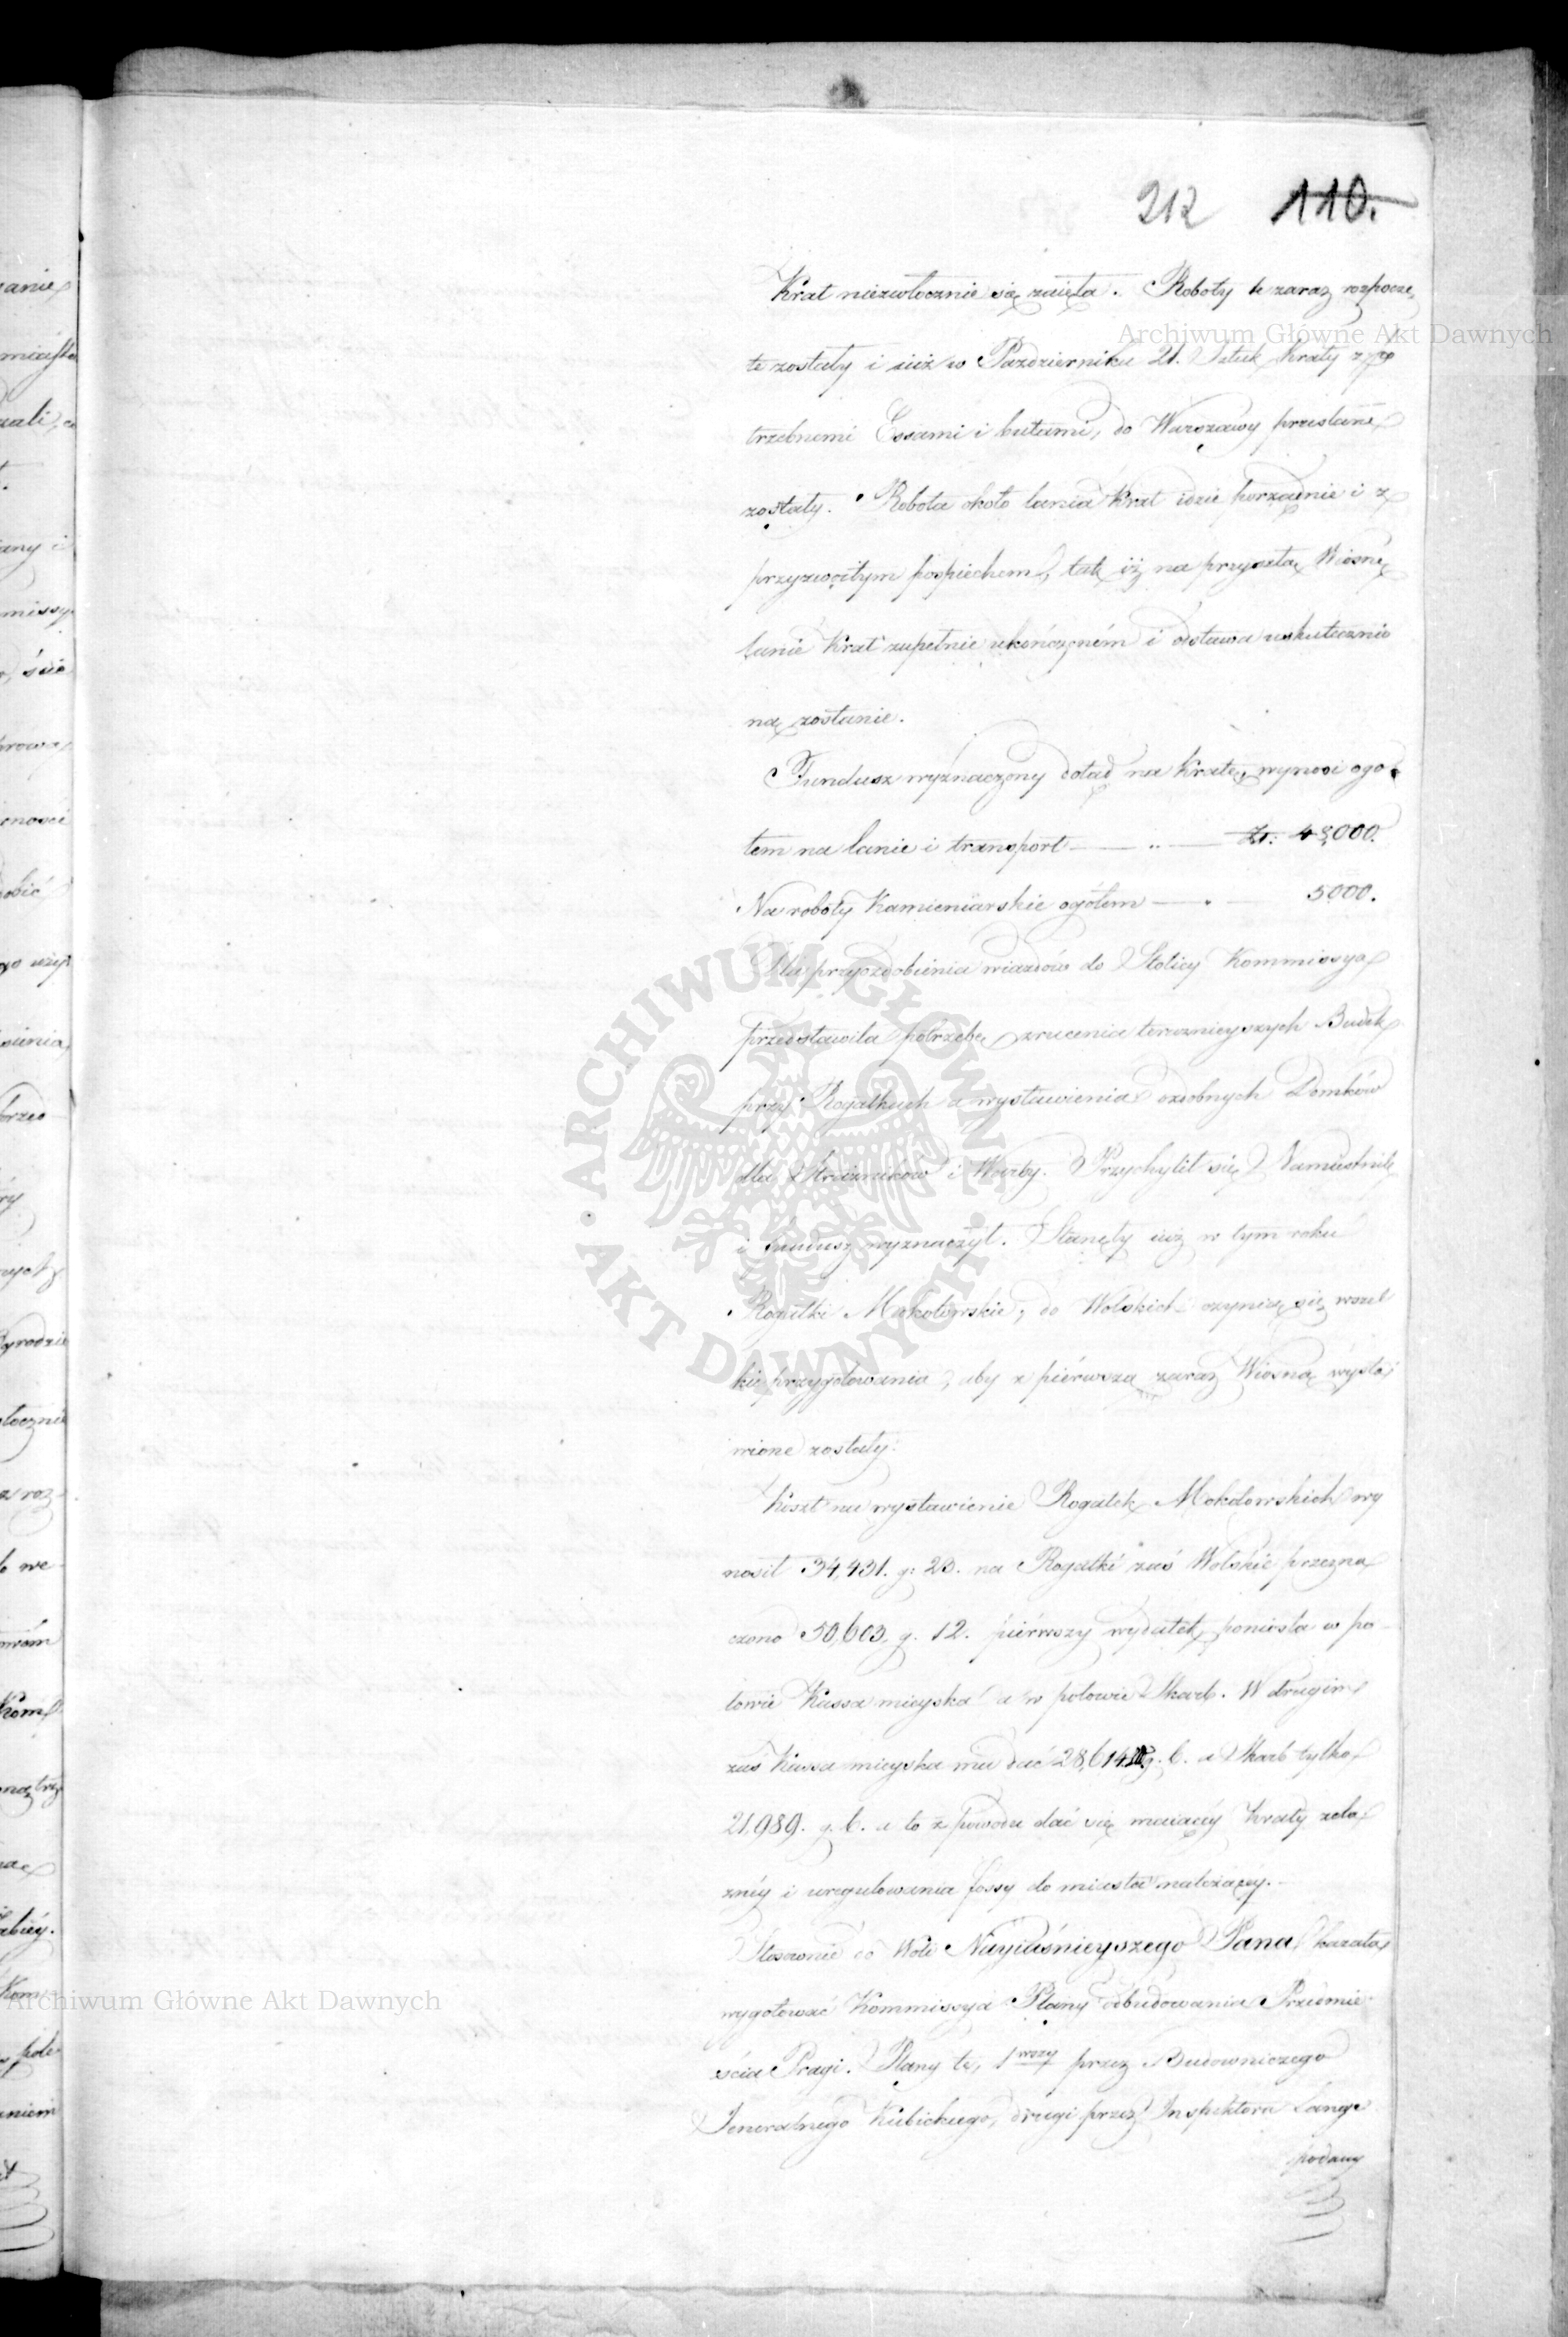 212 110.
Krat niezwłocznie się zaięła. Roboty te zaraz rozpoczę
te zostały i iuż w Pazdzierniku 21. Sztuk Kraty z po
trzebnemi Essami i butami, do Warszawy przesłane
zostały. Robota około lania Krat idzie porządnie i z
przyzwoitym pospiechem, tak iż na przyszłą Wiosnę
lanie Krat zupełnie ukończoném i odstawa uskutecznio
ną zostanie.
Fundusz wyznaczony dotąd na Kratę, wynosi ogo
łem na lanie i transport — „ — Zł: 48,000.
Na roboty Kamieniarskie ogółem — „ — 5000.
Dla przyozdobienia wiazdów do Stolicy Kommissya
przedstawiła potrzebę zrucenia teraznieyszych Budek
przy Rogatkach a wystawienia ozdobnych Domków
dla Strażników i Warty. Przychylił się Namiestnik
i fundusz wyznaczył. Stanęły iuż w tym roku
Rogatki Mokotowskie, do Wolskich czynią się wszel
kie przygotowania, aby z piérwszą zaraz Wiosną wysta
wione zostały.
Koszt na wystawienie Rogatek Mokotowskich wy
nosił 34,431. g: 23. na Rogatki zaś Wolskie przezna
czono 50,603. g. 12. piérwszy wydatek poniosła w po-
łowie Kassa mieyska a w połowie Skarb. W drugim
zaś Kassa mieyska ma dać 28,614 g. 6. a Skarb tylko
21,989. g. 6. a to z powodu dać się maiącéy Kraty żela
znéy i uregulowania fossy do miasta należącéy.
Stosownie do Woli Nayiaśnieyszego Pana, kazała
wygotować Kommissya Plany odbudowania Przedmie
ścia Pragi. Plany te, 1wszy przez Budowniczego
Jeneralnego Kubickiego, drugi przez Inspektora Lange
podany
Archiwum Główne Akt Dawnych
ARCHIWUM GŁÓWNE · AKT DAWNYCH ·
Archiwum Główne Akt Dawnych